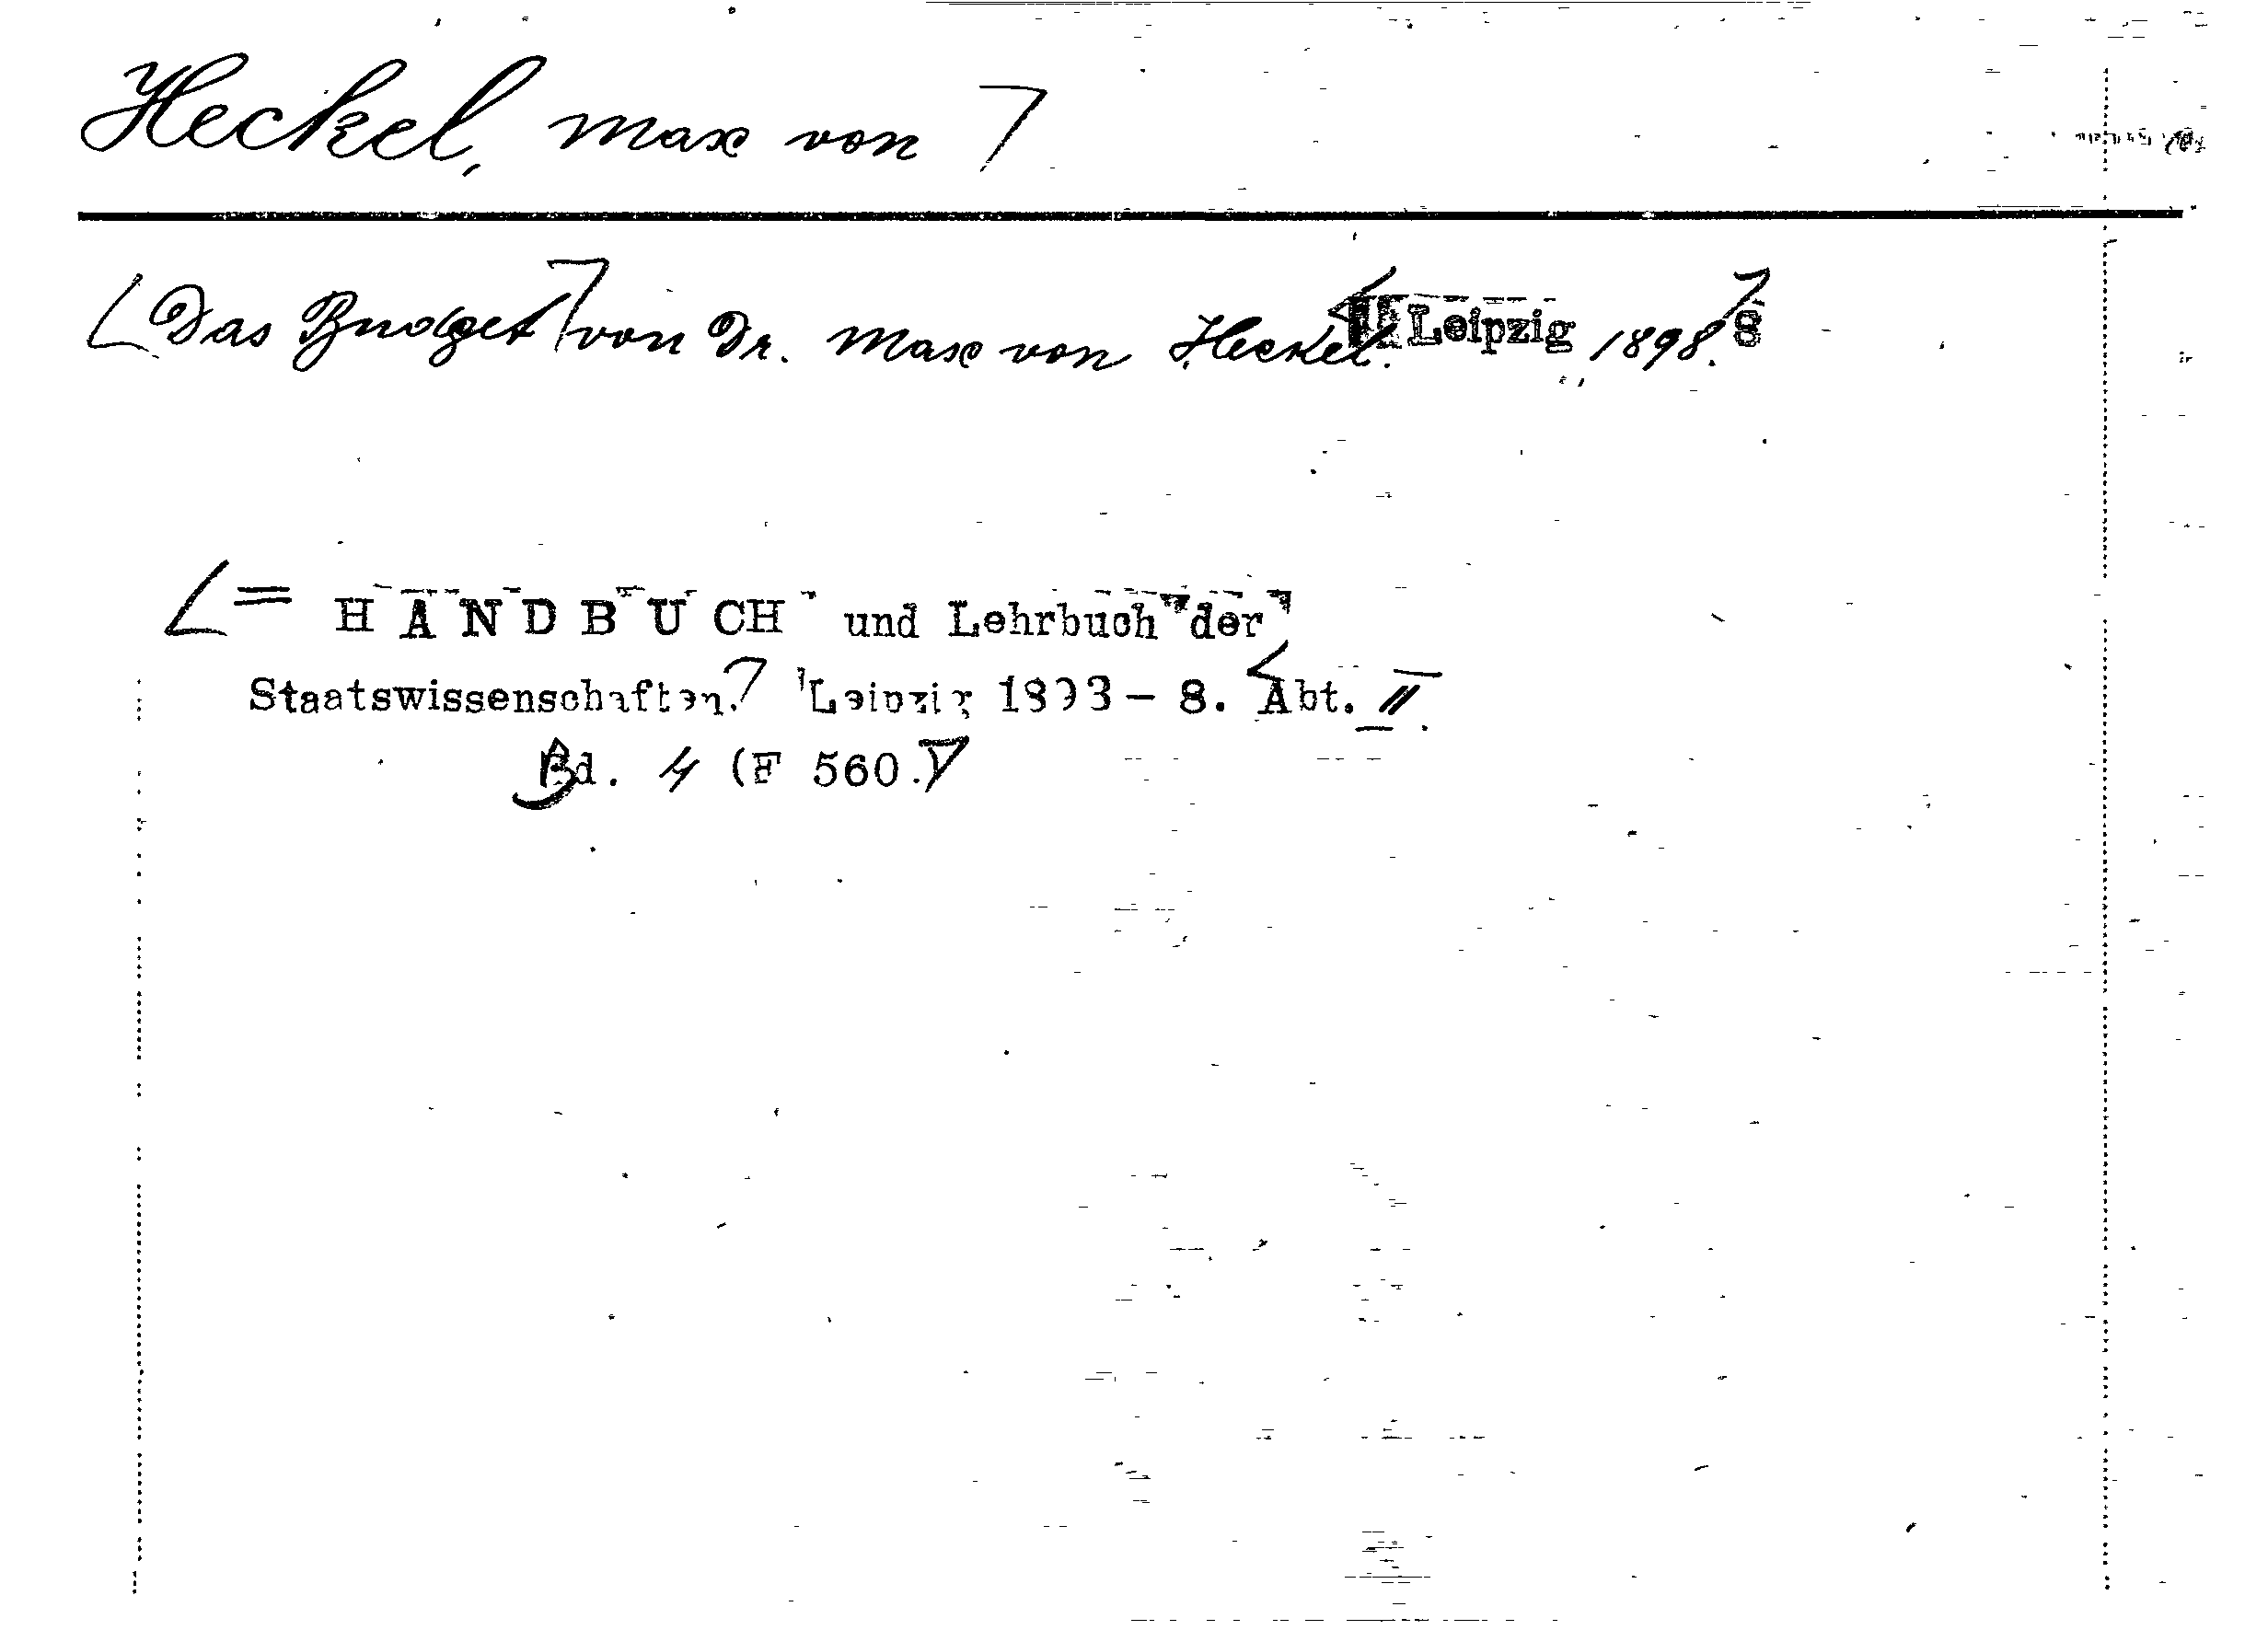 Heckel, Max von
Das Budget von Dr. Max von Heckel. Leipzig 1898.
= HANDBUCH und Lehrbuch der
Staatswissenschaften. Leipzig 1893-8. Abt. II.
Bd. 4 (F 560.)